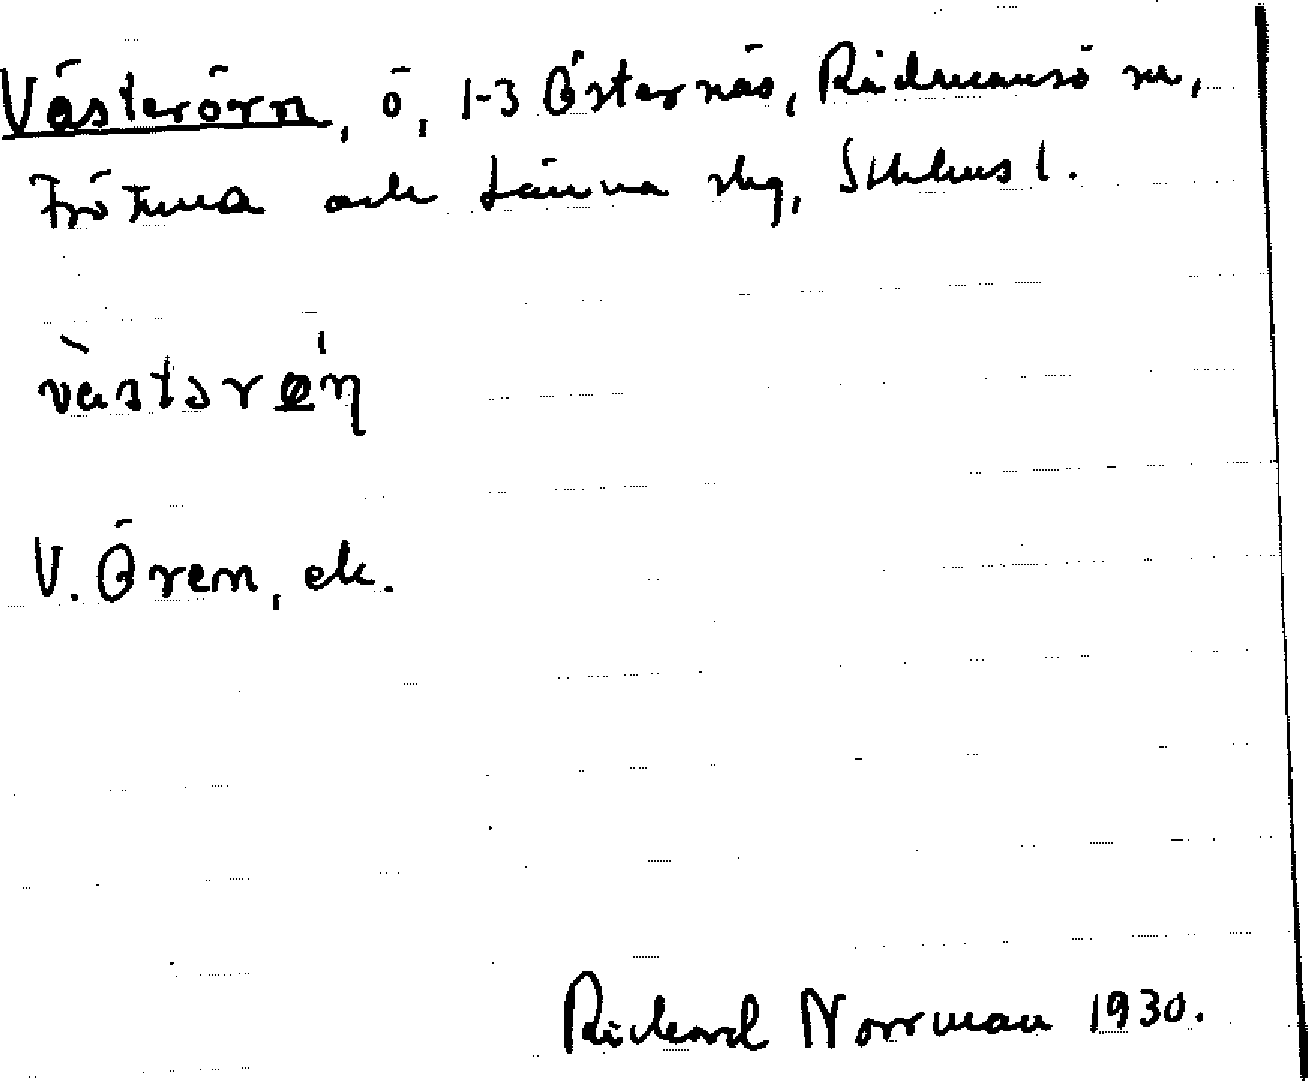 Västerörn, ö, 1-3 Östernäs, Rådmansö sn,
Frötuna och Länna skg, Sthlms l.
vàstərǿη
V. Ören, ek.
Rickard Norrman 1930.